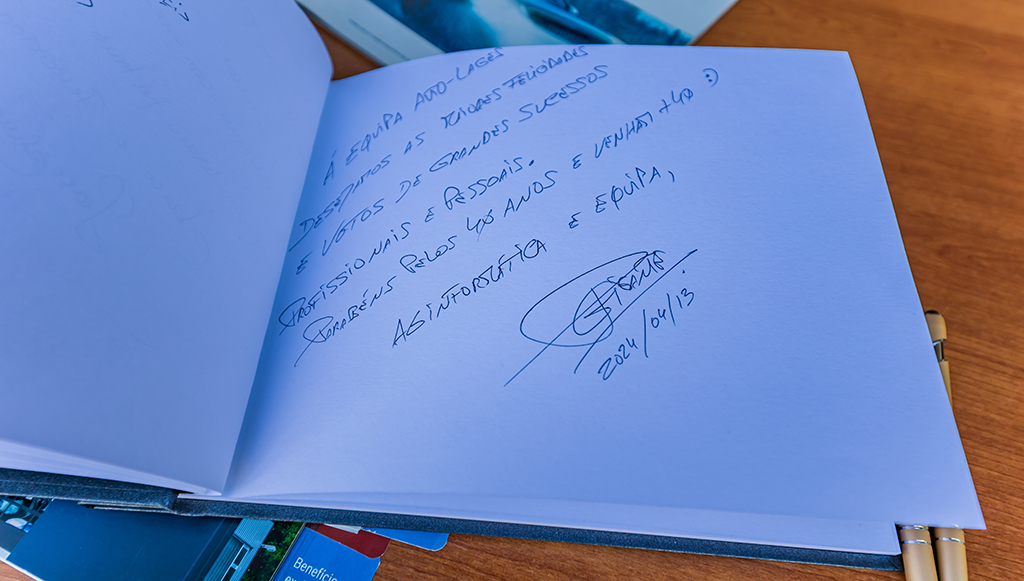 À EQUIPA AUTO-LAGES
DESEJAMOS AS MAIORES FELICIDADES
E VOTOS DE GRANDES SUCESSOS
PROFISSIONAIS E PESSOAIS.
PARABÉNS PELOS 40 ANOS E VENHAM +40 :)
ASINFORMÁTICA E EQUIPA,
2024/04/13
Benefície